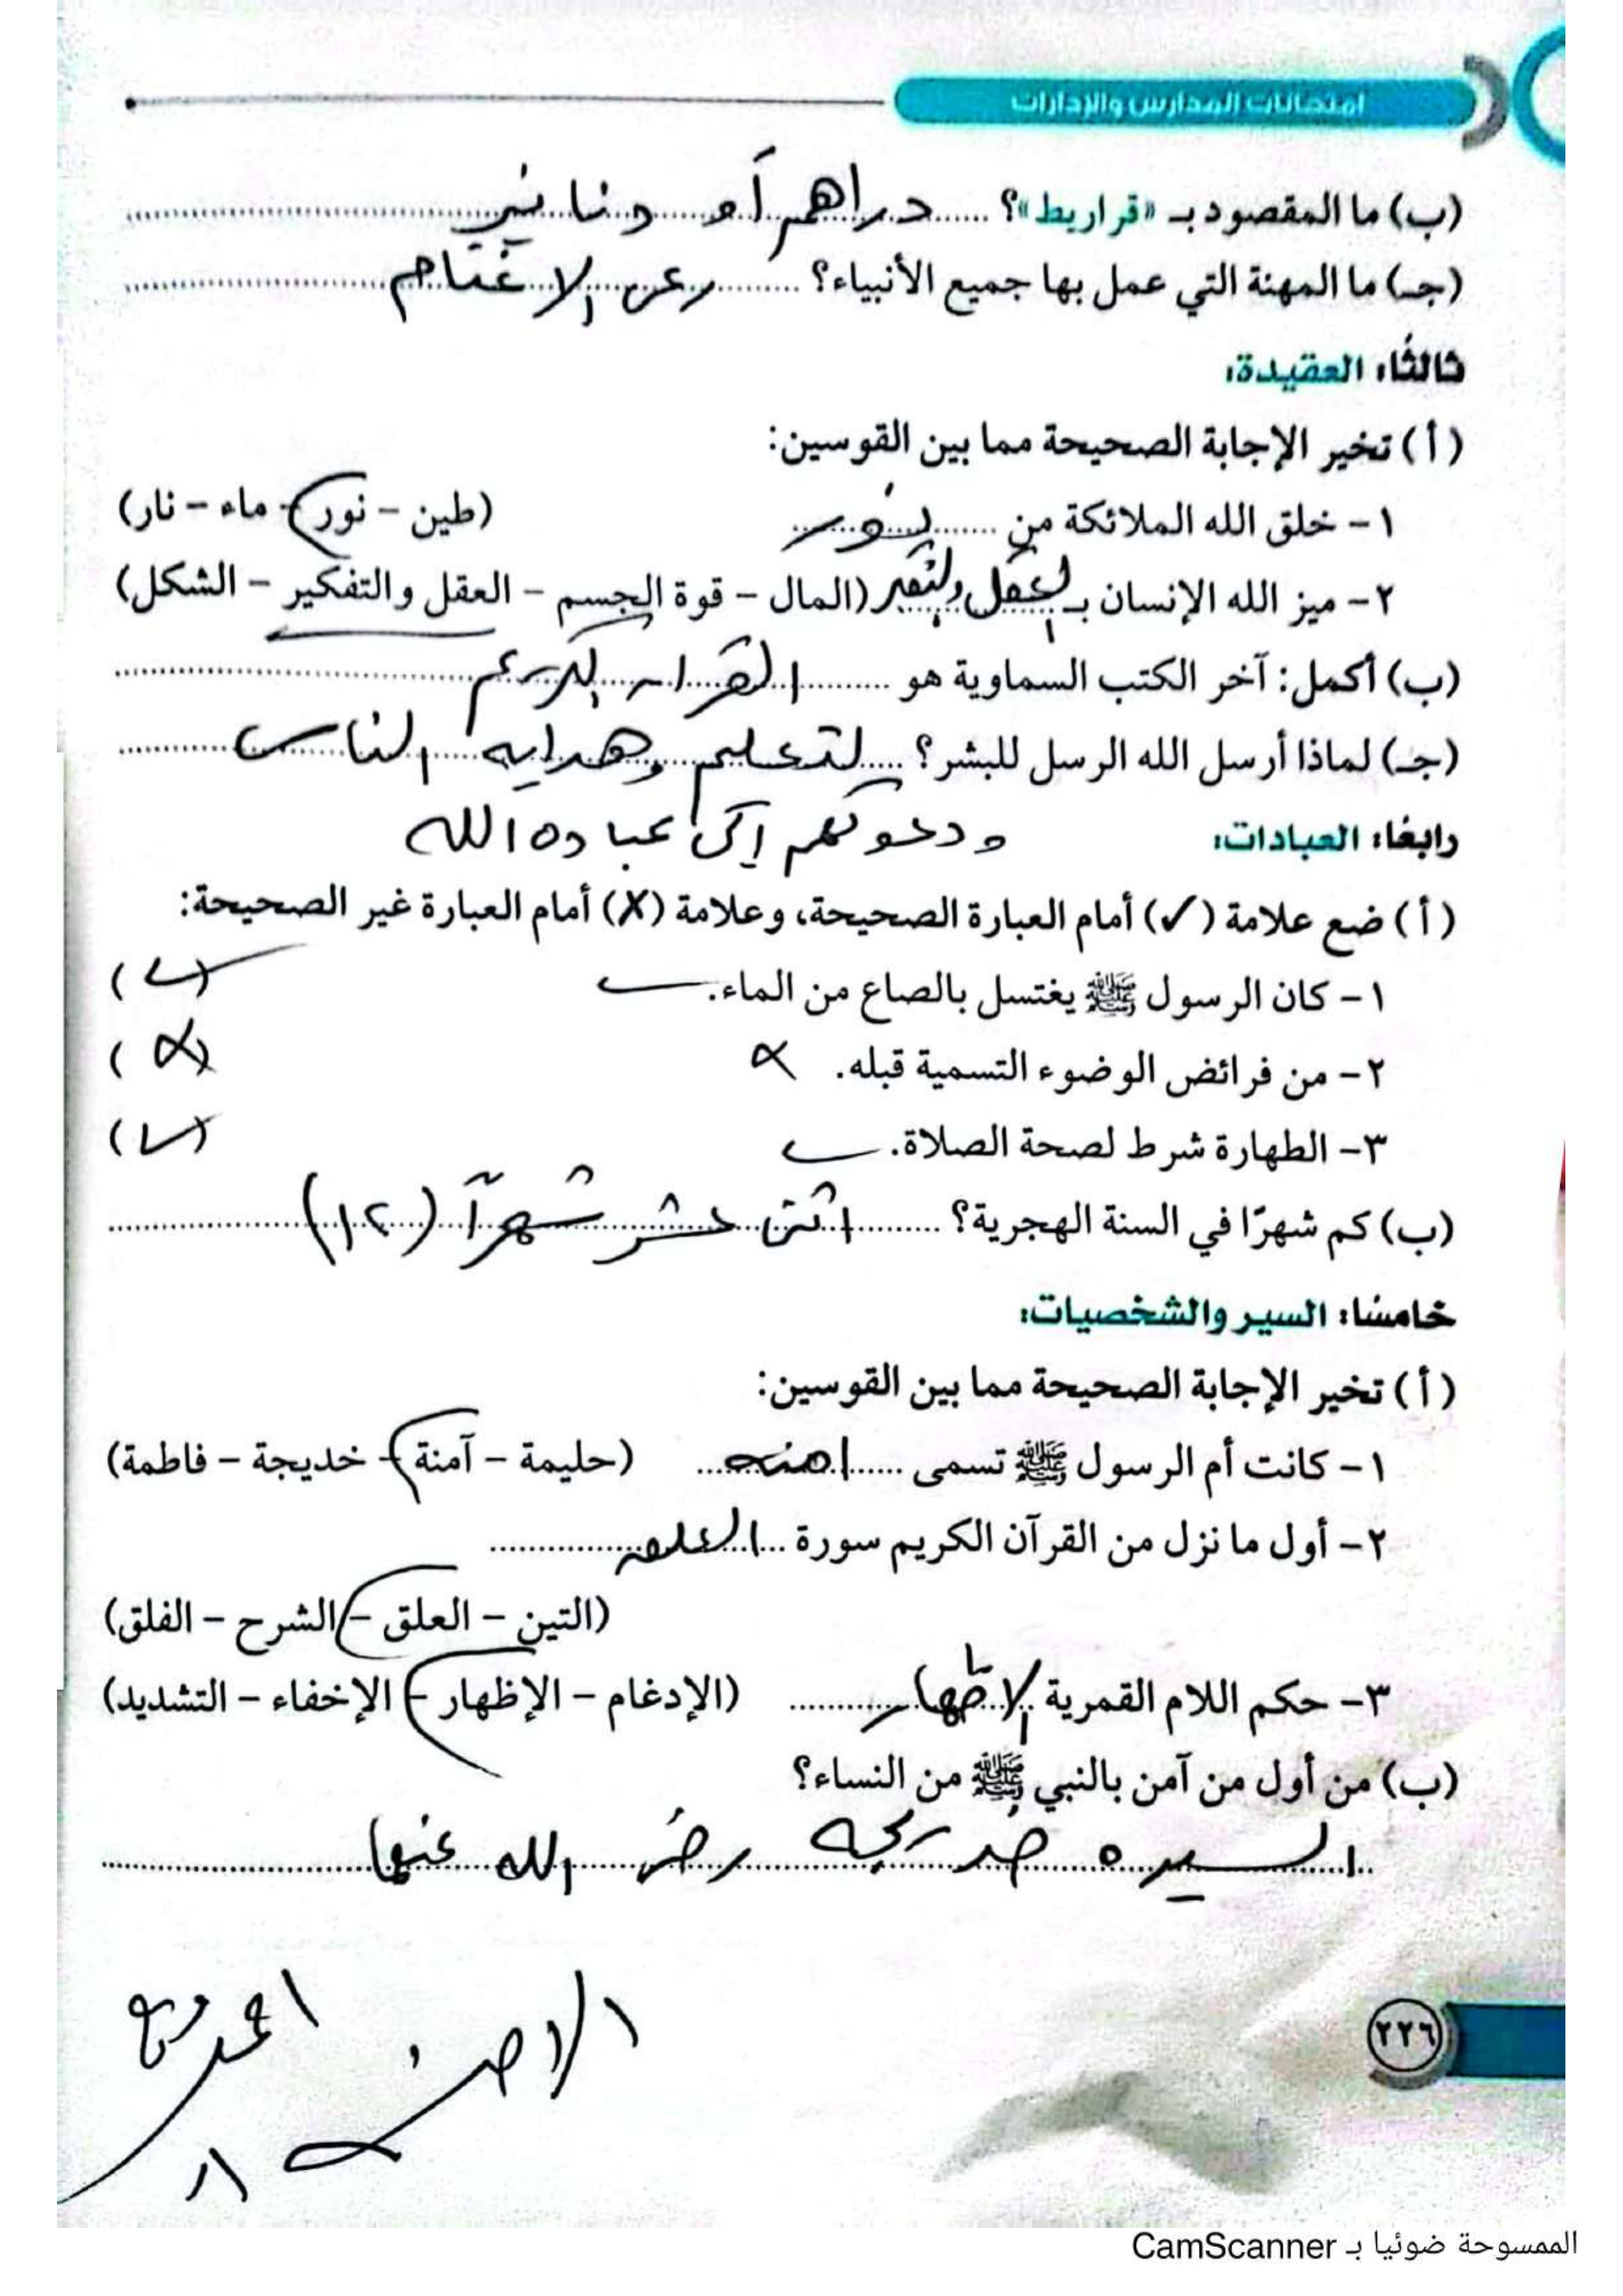 امتحانات المدارس والإدارات
(ب) ما المقصود بـ «قراريط»؟ ...... دراهم أو دنانير ......
(جـ) ما المهنة التي عمل بها جميع الأنبياء؟ ...... رعى الاغنام ......
ثالثًا: العقيدة:
(أ) تخير الإجابة الصحيحة مما بين القوسين:
١- خلق الله الملائكة من ...... نور ...... (طين - نور - ماء - نار)
٢- ميز الله الإنسان بـ العقل والتفكير (المال - قوة الجسم - العقل والتفكير - الشكل)
(ب) أكمل: آخر الكتب السماوية هو ...... القران الكريم ......
(جـ) لماذا أرسل الله الرسل للبشر؟ ...... لتعليم وهدايه الناس ......
ودعوتهم إلى عباده الله
رابعًا: العبادات:
(أ) ضع علامة (✓) أمام العبارة الصحيحة، وعلامة (X) أمام العبارة غير الصحيحة:
١- كان الرسول ﷺ يغتسل بالصاع من الماء. ✓ (✓)
٢- من فرائض الوضوء التسمية قبله. X (X)
٣- الطهارة شرط لصحة الصلاة. ✓ (✓)
(ب) كم شهرًا في السنة الهجرية؟ ...... اثنى عشر شهرآ (١٢) ......
خامسًا: السير والشخصيات:
(أ) تخير الإجابة الصحيحة مما بين القوسين:
١- كانت أم الرسول ﷺ تسمى ...... امنه ...... (حليمة - آمنة - خديجة - فاطمة)
٢- أول ما نزل من القرآن الكريم سورة ... العلق ......
(التين - العلق - الشرح - الفلق)
٣- حكم اللام القمرية الاظهار ...... (الإدغام - الإظهار - الإخفاء - التشديد)
(ب) من أول من آمن بالنبي ﷺ من النساء؟
... السيده خديجه رضى الله عنها ......
٢٢٦
الممسوحة ضوئيا بـ CamScanner